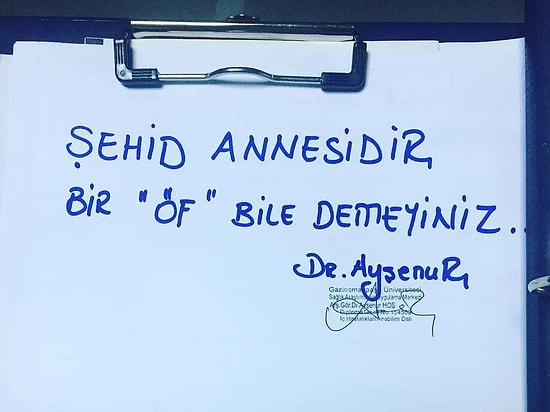 ŞEHİD ANNESİDİR
BİR "ÖF" BİLE DEMEYİNİZ..
Dr. AyşenuR
Gaziosmanpaşa Üniversitesi
Sağlık Araştırma Uygulama Merkezi
Arş.Gör.Dr.Ayşenur HOŞ
Diploma Tescil No:
İç Hastalıkları Anabilim Dalı